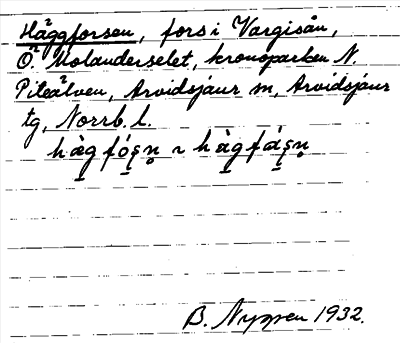 Häggforsen, fors i Vargisån,
Ö. Molanderselet, kronoparken N.
Piteälven, Arvidsjaur sn, Arvidsjaur
tg, Norrb. l.
hàg fó̱s̩n̥ ~ hàg fás̩n̥
B. Nygren 1932.